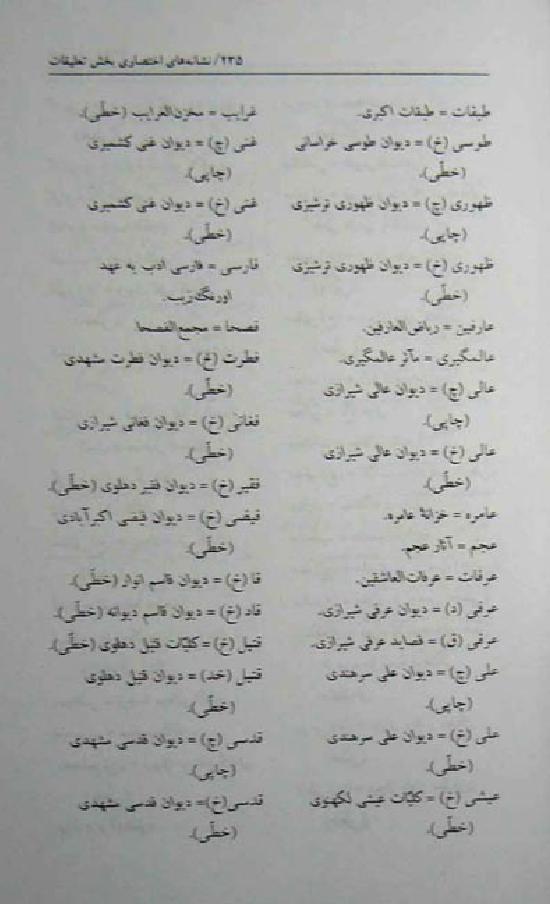 ۲۳۵/ نشانه‌های اختصاری بخش تعلیقات
طبقات = طبقات اکبری.
طوسی (خ) = دیوان طوسی خراسانی
(خطّی).
ظهوری (چ) = دیوان ظهوری ترشیزی
(چاپی).
ظهوری (خ) = دیوان ظهوری ترشیزی
(خطّی).
عارفین = ریاض‌العارفین.
عالمگیری = مآثر عالمگیری.
عالی (چ) = دیوان عالی شیرازی
(چاپی).
عالی (خ) = دیوان عالی شیرازی
(خطّی).
عامره = خزانهٔ عامره.
عجم = آثار عجم.
عرفات = عرفات‌العاشقین.
عرفی (د) = دیوان عرفی شیرازی.
عرفی (ق) = قصاید عرفی شیرازی.
علی (چ) = دیوان علی سرهندی
(چاپی).
علی (خ) = دیوان علی سرهندی
(خطّی).
عیشی (خ) = کلیّات عیشی لکهنوی
(خطّی).
غرایب = مخزن‌الغرایب (خطّی).
غنی (چ) = دیوان غنی کشمیری
(چاپی).
غنی (خ) = دیوان غنی کشمیری
(خطّی).
فارسی = فارسی ادب به عهد
اورنگ‌زیب.
فصحا = مجمع‌الفصحا.
فطرت (خ) = دیوان فطرت مشهدی
(خطّی).
فغانی (خ) = دیوان فغانی شیرازی
(خطّی).
فقیر (خ) = دیوان فقیر دهلوی (خطّی).
فیضی (خ) = دیوان فیضی اکبرآبادی
(خطّی).
قا (خ) = دیوان قاسم انوار (خطّی).
قاد (خ) = دیوان قاسم دیوانه (خطّی).
قتیل (خ) = کلیّات قتیل دهلوی (خطّی).
قتیل (خد) = دیوان قتیل دهلوی
(خطّی).
قدسی (چ) = دیوان قدسی مشهدی
(چاپی).
قدسی (خ) = دیوان قدسی مشهدی
(خطّی).